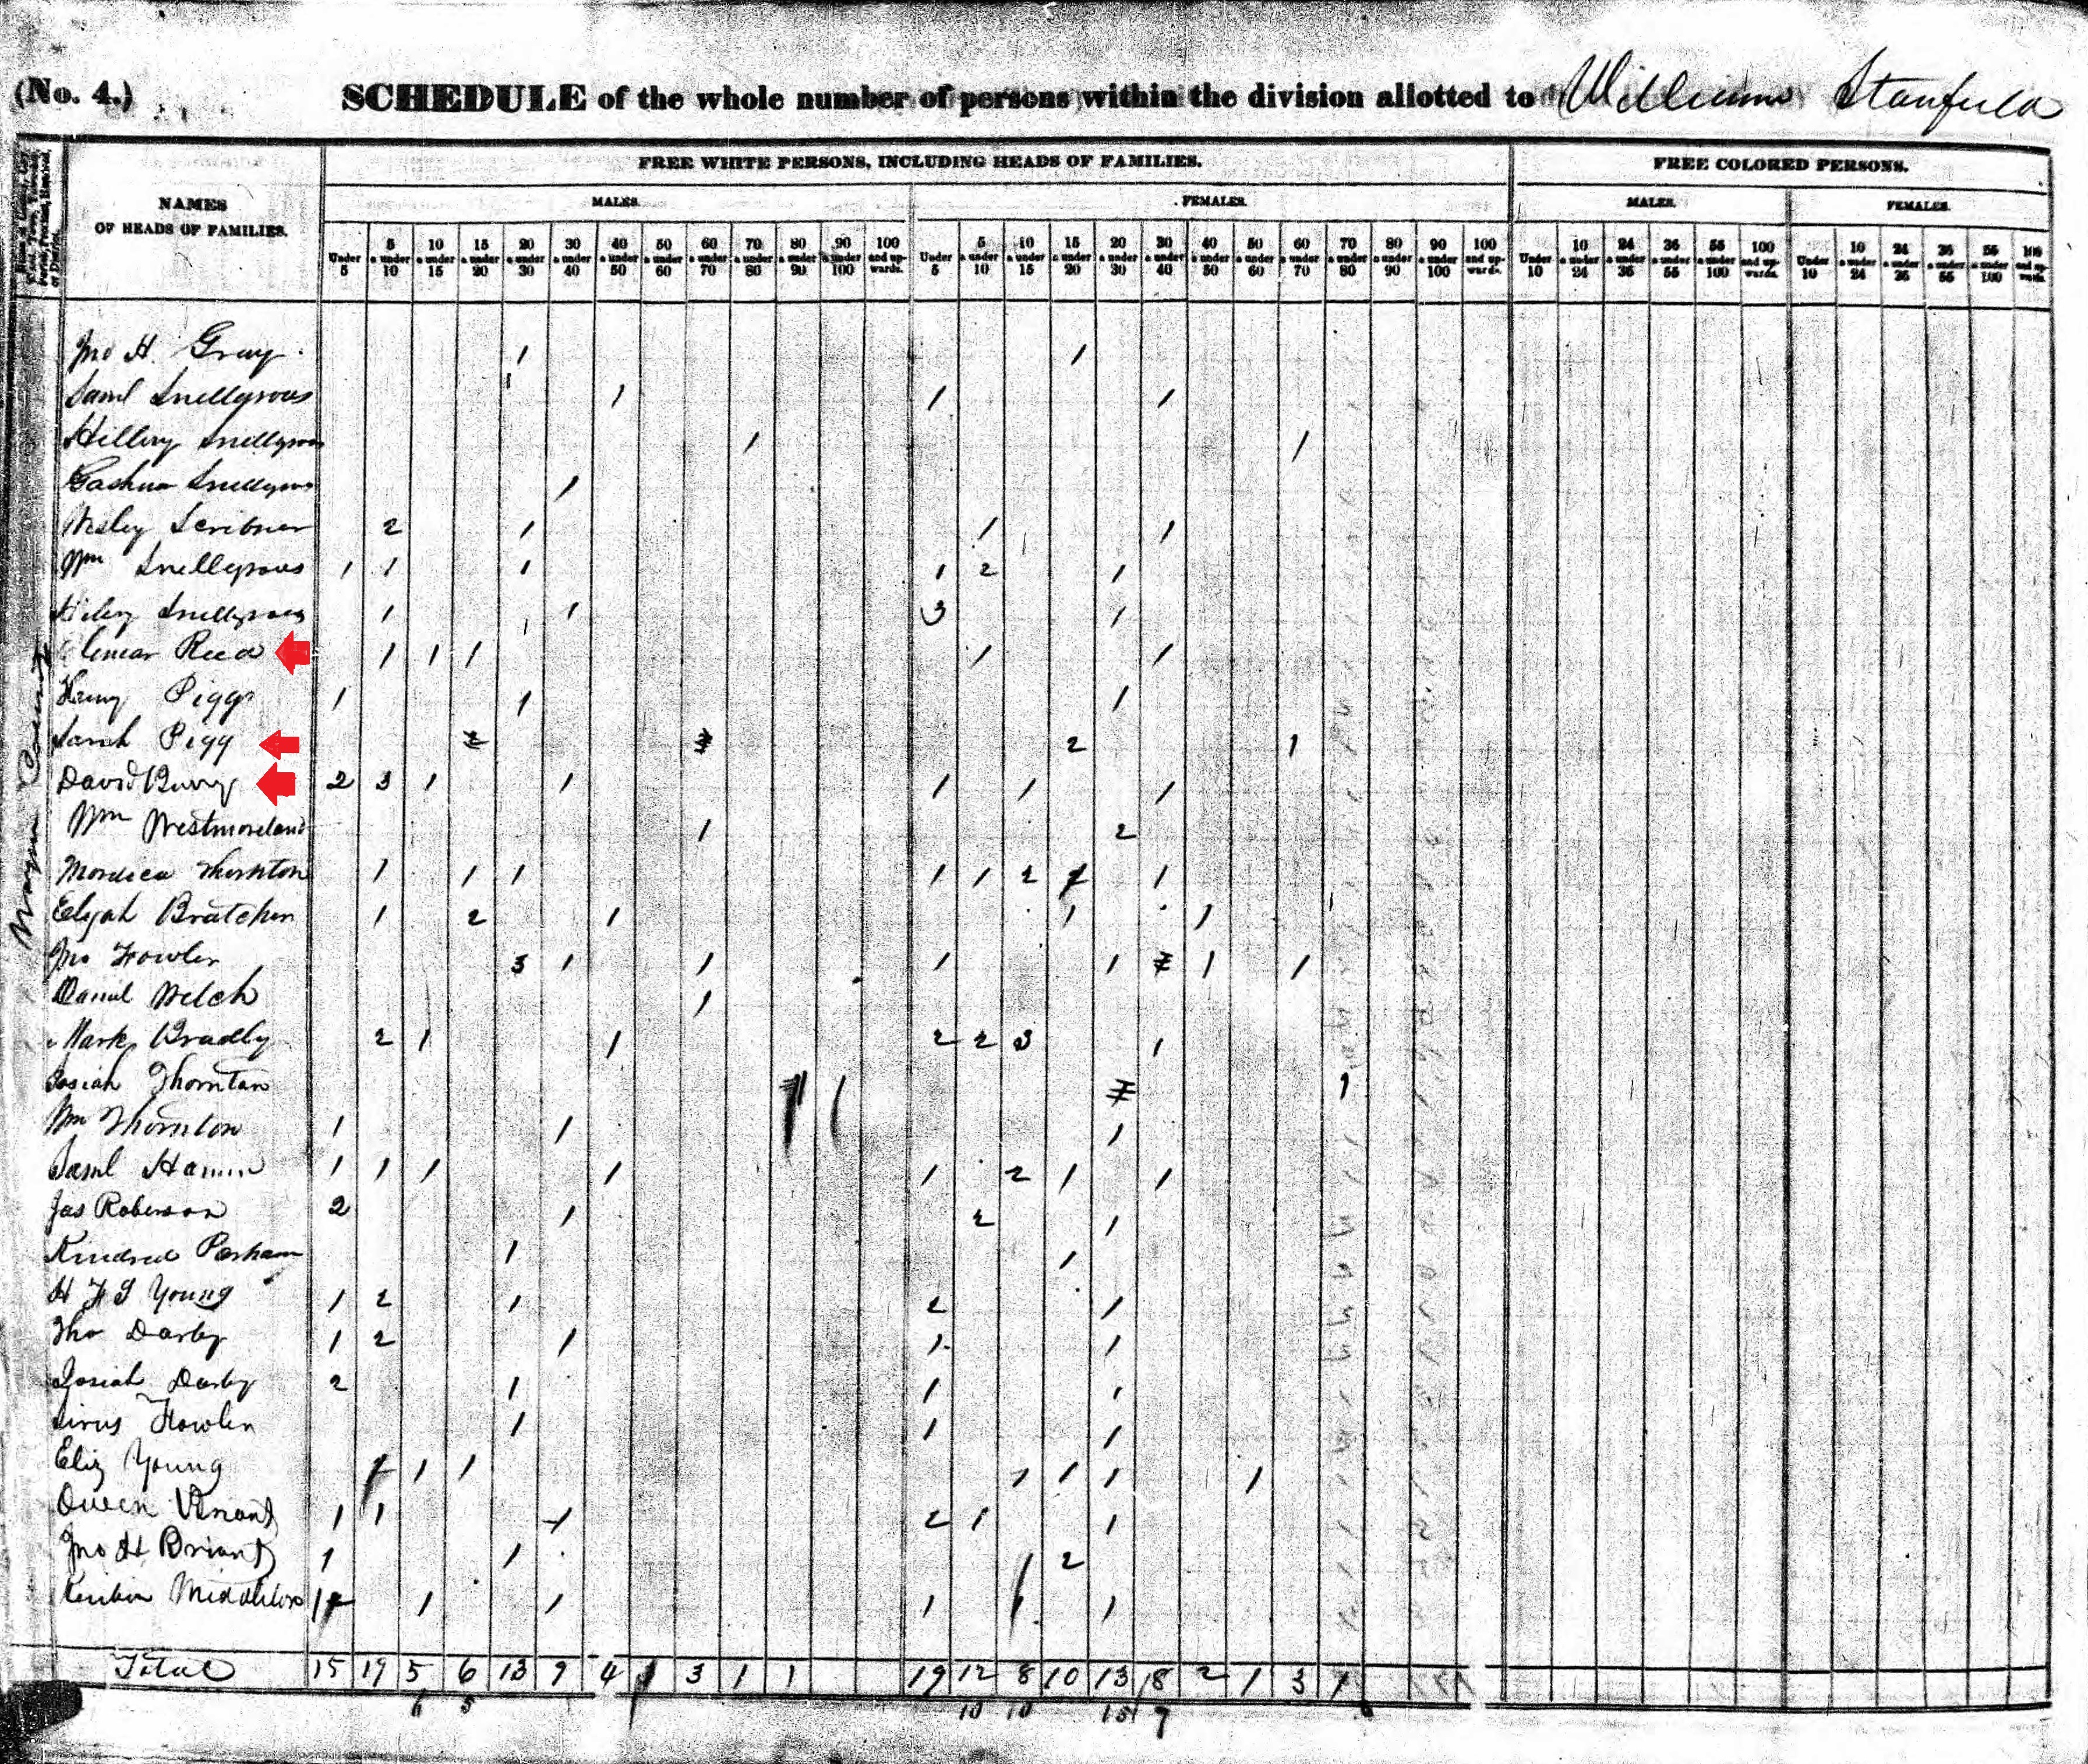 (No. 4.) SCHEDULE of the whole number of persons within the division allotted to William Stanfield
NAMES OF HEADS OF FAMILIES.
FREE WHITE PERSONS, INCLUDING HEADS OF FAMILIES.
FREE COLORED PERSONS.
MALES. FEMALES. MALES. FEMALES.
Under 5 | 5 & under 10 | 10 & under 15 | 15 & under 20 | 20 & under 30 | 30 & under 40 | 40 & under 50 | 50 & under 60 | 60 & under 70 | 70 & under 80 | 80 & under 90 | 90 & under 100 | 100 and upwards. | Under 5 | 5 & under 10 | 10 & under 15 | 15 & under 20 | 20 & under 30 | 30 & under 40 | 40 & under 50 | 50 & under 60 | 60 & under 70 | 70 & under 80 | 80 & under 90 | 90 & under 100 | 100 and upwards. | Under 10 | 10 & under 24 | 24 & under 36 | 36 & under 55 | 55 & under 100 | 100 and upwards. | Under 10 | 10 & under 24 | 24 & under 36 | 36 & under 55 | 55 & under 100 | 100 and upwards.
Wayne County
Jno H. Gray 1 1
Saml Snellgrous 1 1 1
Hillery Snellgrous 1 1
Snellgrous 1
Wesley Scribner 2 1 1 1
Wm Snellgrous 1 1 1 1 2 1
Snellgrous 1 1 3 1
Reed 1 1 1 1 1
Henry Pigg 1 1 1
Sarah Pigg 2 1
David 2 3 1 1 1 1 1
Wm Westmoreland 1 2
Mordica Thornton 1 1 1 1 1 2 1
Elijah Bratcher 1 2 1 1 1
Jno Fowler 3 1 1 1 1 1 1
Daniel Welch 1
Mark Bradly 2 1 1 2 2 3 1
Josiah Thornton 1 1
Wm Thornton 1 1 1
Saml Hamm 1 1 1 1 1 2 1 1
Jas Roberson 2 1 2 1
Kindred Parham 1 1
H F G Young 1 2 1 2 1
Tho Darby 1 2 1 1 1
Josiah Darby 2 1 1 1
Fowler 1 1 1
Eliz Young 1 1 1 1 1 1
Queen 1 1 1 2 1 1
Jno H Briant 1 1 1 2
Reuben Middleton 1 1 1 1 1 1
Total 15 19 5 6 13 9 4 1 3 1 1 19 12 8 10 13 18 2 1 3 1
6 5 10 10 15 9